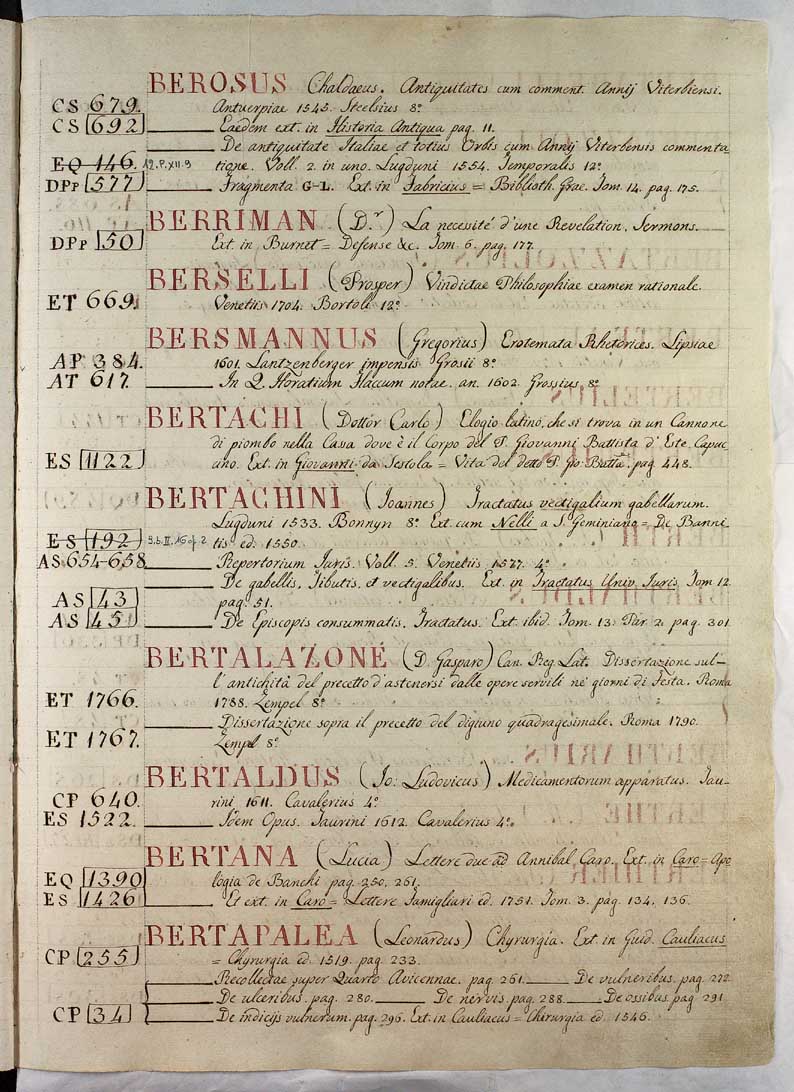 BEROSUS Chaldaeus. Antiquitates cum comment. Annij Viterbiensi.
CS 679. Antverpiae 1545. Steelsius 8º
CS 692 Eaedem ext. in Historia Antiqua pag. 11.
De antiquitate Italiae et totius Orbis cum Annij Viterbensis commenta
EQ 146. 12.P.XII.9 tione. Voll. 2. in uno. Lugduni 1554. Temporalis 12º
DPp 577 Fragmenta G-L. Ext. in Fabricius = Biblioth. Grae. Tom. 14. pag. 175.
BERRIMAN (D.r) La necesité d'une Revelation. Sermons.
DPp 50 Ext. in Burnet = Defense &c. Tom. 6. pag. 177.
BERSELLI (Prosper) Vindictae Philosophiae examen rationale.
ET 669. Venetiis 1704. Bortoli 12º
BERSMANNUS (Gregorius) Erotemata Rhetorices. Lipsiae
AP 384. 1601. Lantzenberger impensis Grosii 8º
AT 617 In Q. Horatium Flaccum notae. an. 1602. Grossius 8º
BERTACHI (Dottór Carlo) Elogio latino, che si trova in un Cannone
di piombo nella Cassa dove è il Corpo del P. Giovanni Battista d'Este Capuc
ES 1122 cino. Ext. in Giovanni da Sestola = Vita del detto P. Gio: Batta. pag. 448.
BERTACHINI (Ioannes) Tractatus vectigalium gabellarum.
Lugduni 1533. Bonnyn 8º Ext. cum Nelli a S. Geminiano = De Banni
ES 192 9.b.II.16 op. 2 tis ed. 1550.
AS 654-658 Repertorium Iuris. Voll. 5. Venetiis 1577. 4º
De gabellis, Tibutis, et vectigalibus. Ext. in Tractatus Univ. Iuris Tom 12.
AS 43 pag. 51.
AS 45 De Episcopis consummatis. Tractatus. Ext. ibid. Tom. 13. Par. 2. pag. 301
BERTALAZONÉ (D. Gasparo) Can. Reg. Lat. Dissertazione sul-
l'antichità del precetto d'astenersi dalle opere servili né giorni di Festa. Roma
ET 1766. 1788. Zempel 8º
Dissertazione sopra il precetto del digiuno quadragesimale. Roma 1790.
ET 1767. Zempl 8º
BERTALDUS (Jo: Ludovicus) Medicamentorum apparatus. Tau-
CP 640. rini 1611. Cavalerius 4º
ES 1522. Idem Opus. Taurini 1612. Cavalerius 4º.
BERTANA (Lucia) Lettere due ad Annibal Caro. Ext. in Caro = Apo
EQ 1390 logia de Banchi pag. 250. 261.
ES 1426 Et ext. in Caro = Lettere famigliari ed. 1751. Tom. 3. pag. 134. 136.
BERTAPALEA (Leonardus) Chyrurgia. Ext. in Guid. Cauliacus
CP 255 = Chyrurgia ed. 1519. pag. 233.
Recollectae super Quarto Avicennae. pag. 261. De vulneribus. pag. 272
De ulceribus. pag. 280. De nervis. pag. 288. De ossibus. pag. 291.
CP 34 De indicijs vulnerum. pag. 296. Ext. in Cauliacus = Chirurgia ed. 1546.